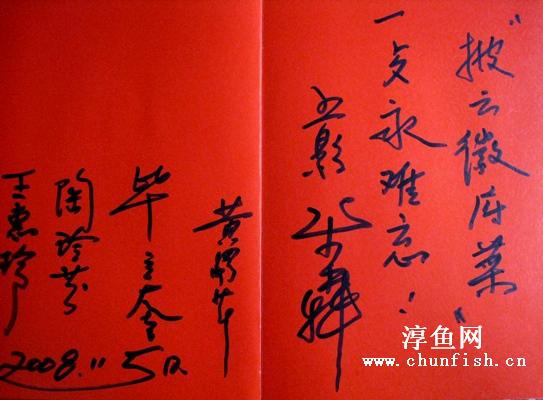 "披云徽府菜"
一歺永难忘!
黄
毕立奎
陶玲芬
王惠玲
2008.11 5日
淳鱼网
www.chunfish.cn